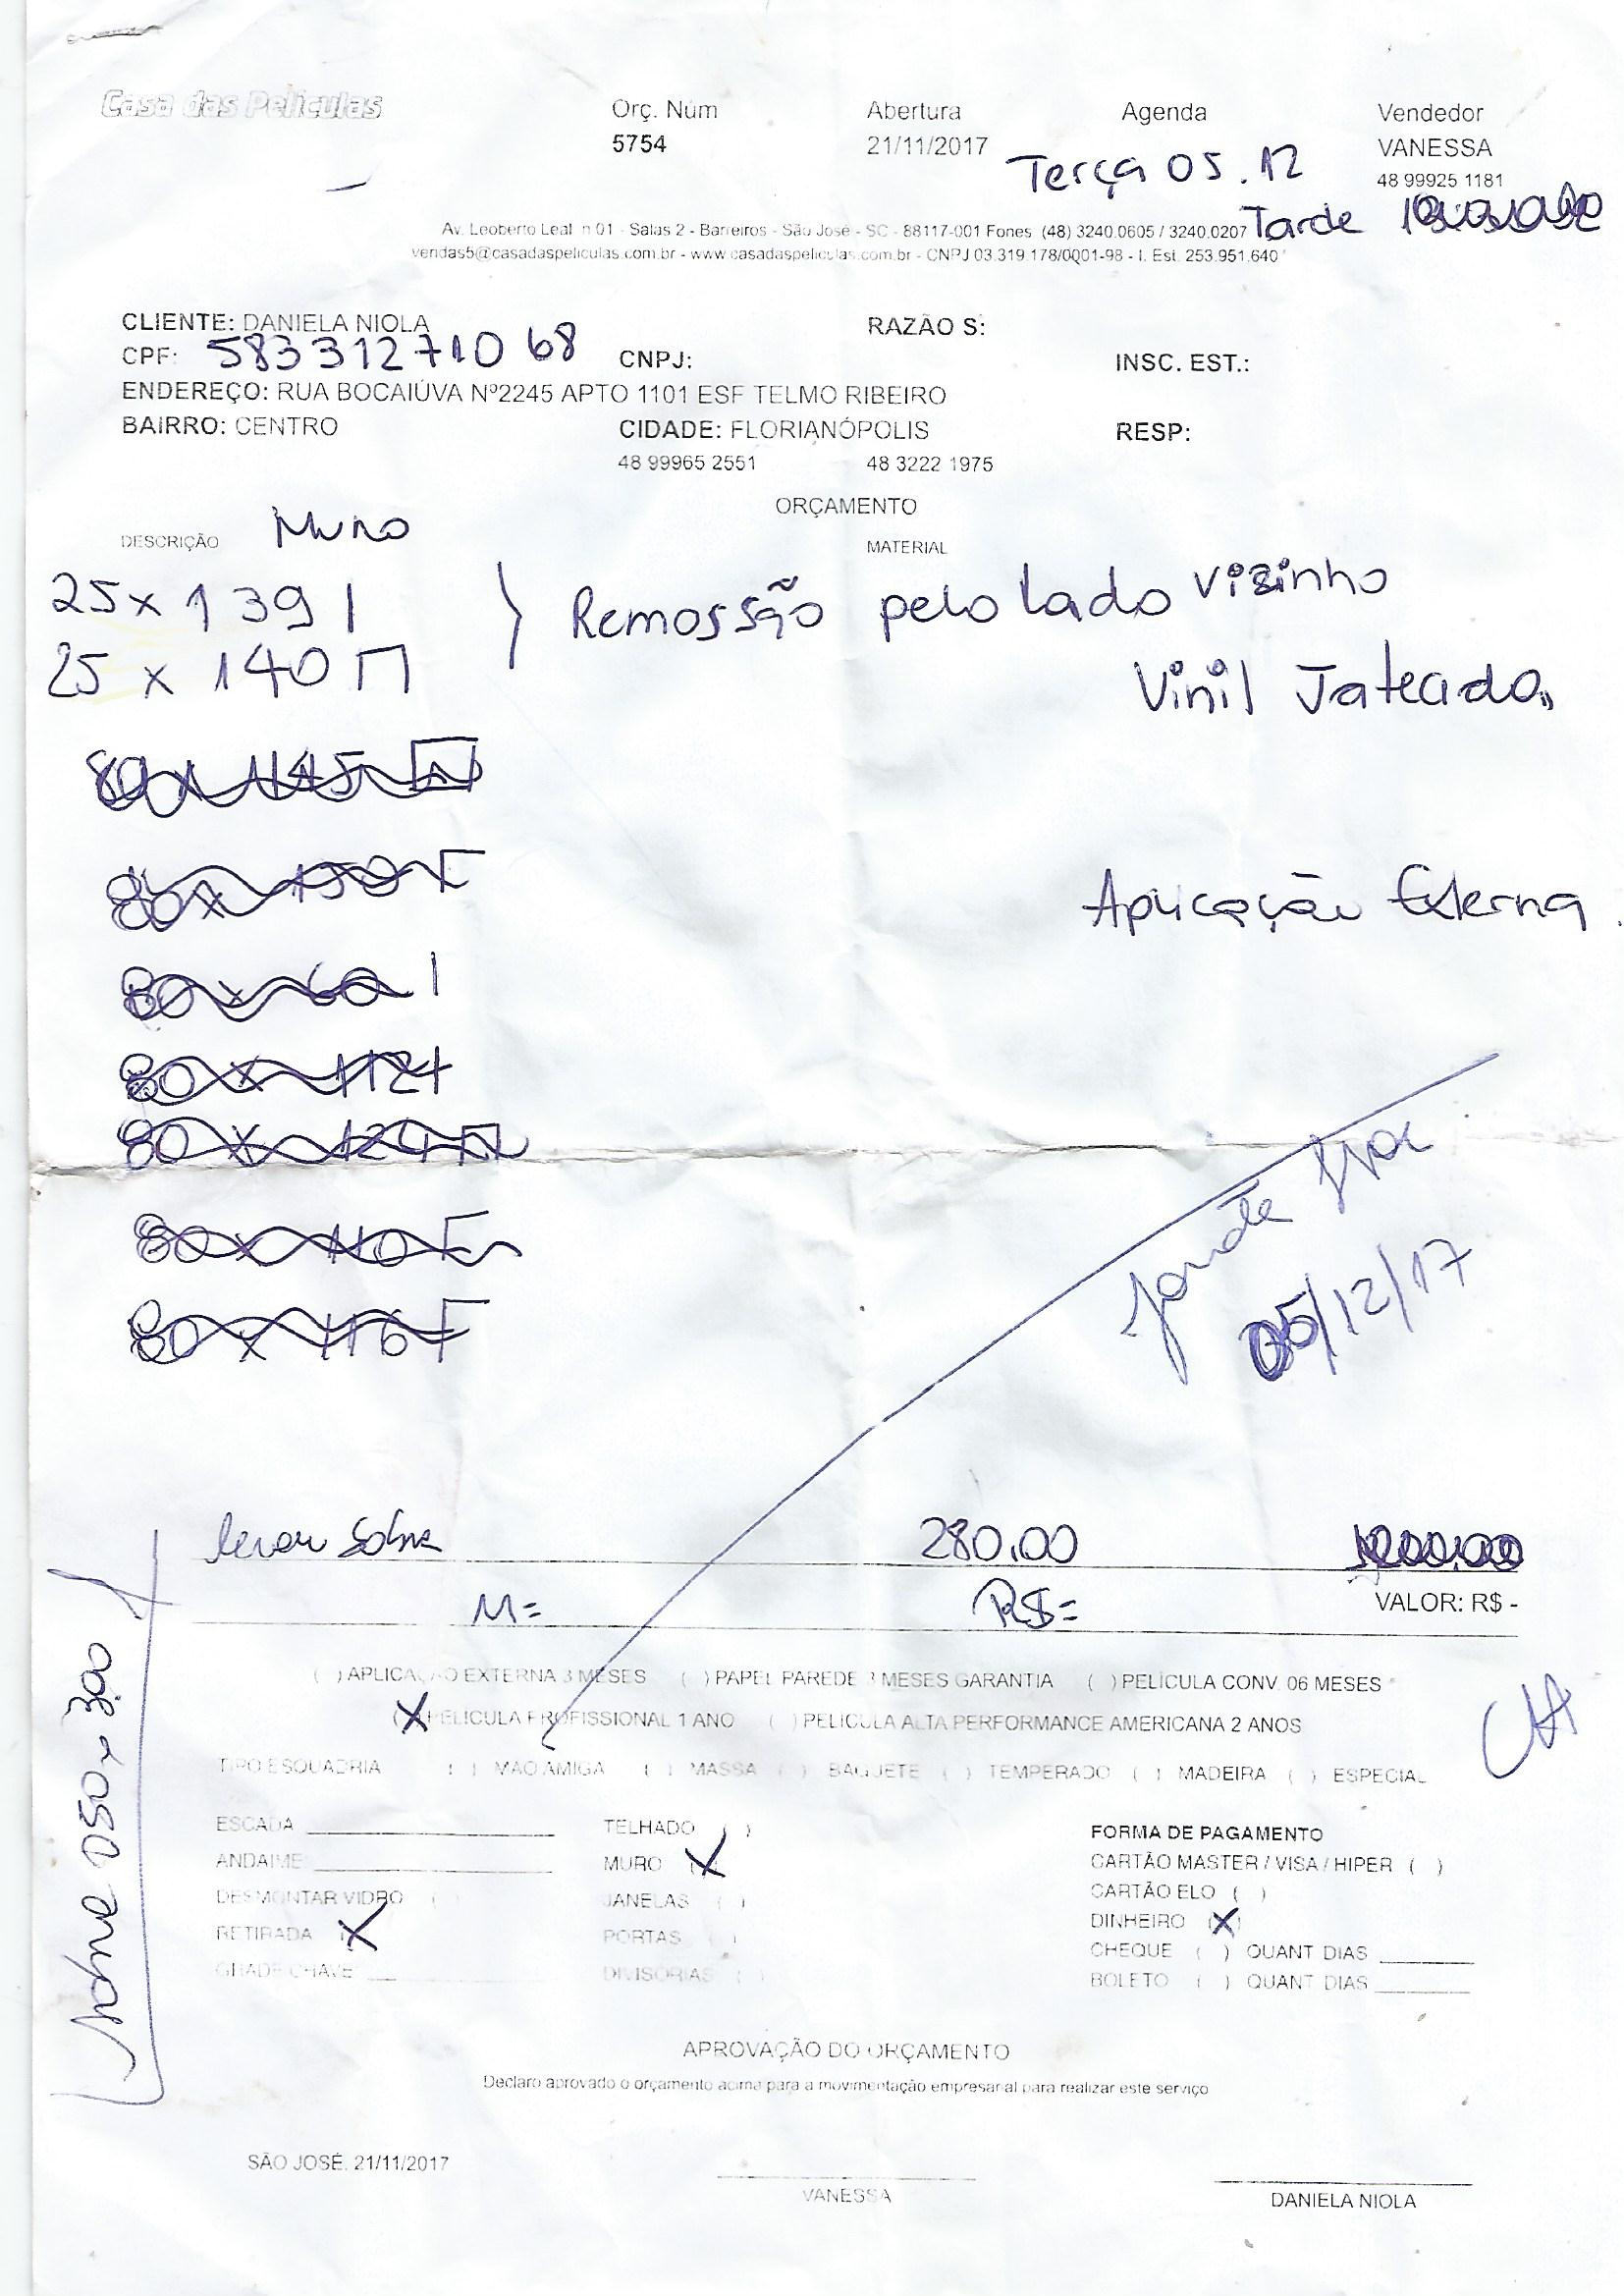 Casa das Películas
Orç. Núm Abertura Agenda Vendedor
5754 21/11/2017 VANESSA
Terça 05.12 48 99925 1181
Tarde
Av. Leoberto Leal n 01 - Salas 2 - Barreiros - São José - SC - 88117-001 Fones (48) 3240.0605 / 3240.0207
vendas5@casadaspeliculas.com.br - www.casadaspeliculas.com.br - CNPJ 03.319.178/0001-98 - I. Est. 253.951.640
CLIENTE: DANIELA NIOLA RAZÃO S:
CPF: 583312710 68 CNPJ: INSC. EST.:
ENDEREÇO: RUA BOCAIÚVA Nº2245 APTO 1101 ESF TELMO RIBEIRO
BAIRRO: CENTRO CIDADE: FLORIANÓPOLIS RESP:
48 99965 2551 48 3222 1975
ORÇAMENTO
DESCRIÇÃO Muro MATERIAL
25 x 139 | Remossão pelo lado vizinho
25 x 140 Π
Vinil Jateado
80 x 1145
80 x 150
Aplicação Externa
80 x 60 |
80 x 112
80 x 124
80 x 110
80 x 116
05/12/17
levar Sobra 280,00
M= R$= VALOR: R$ -
( ) APLICAÇÃO EXTERNA 3 MESES ( ) PAPEL PAREDE 3 MESES GARANTIA ( ) PELÍCULA CONV. 06 MESES
(X) PELÍCULA PROFISSIONAL 1 ANO ( ) PELÍCULA ALTA PERFORMANCE AMERICANA 2 ANOS
TIPO ESQUADRIA ( ) MÃO AMIGA ( ) MASSA ( ) BAGUETE ( ) TEMPERADO ( ) MADEIRA ( ) ESPECIAL
ESCADA TELHADO ( ) FORMA DE PAGAMENTO
ANDAIME MURO (X) CARTÃO MASTER / VISA / HIPER ( )
DESMONTAR VIDRO ( ) JANELAS ( ) CARTÃO ELO ( )
RETIRADA (X) PORTAS ( ) DINHEIRO (X)
GRADE CHAVE DIVISÓRIAS ( ) CHEQUE ( ) QUANT DIAS
BOLETO ( ) QUANT DIAS
Sobra 050 x 300
APROVAÇÃO DO ORÇAMENTO
Declaro aprovado o orçamento acima para a movimentação empresarial para realizar este serviço
SÃO JOSÉ, 21/11/2017
VANESSA
DANIELA NIOLA